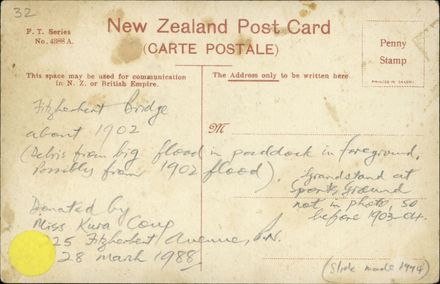 32
F. T. Series
No. 4388 A.
New Zealand Post Card
(CARTE POSTALE)
Penny
Stamp
PRINTED IN SAXONY
This space may be used for communication
in N. Z. or British Empire.
The Address only to be written here
M
Fitzherbert Bridge
about 1902
(Debris from big flood in paddock in foreground,
possibly from 1902 flood).
Grandstand at
Sports Ground
not in photo, so
before 1903-04.
Donated by
Miss Kura
25 Fitzherbert Avenue, P.N.
28 March 1988
(Slide made 1994)